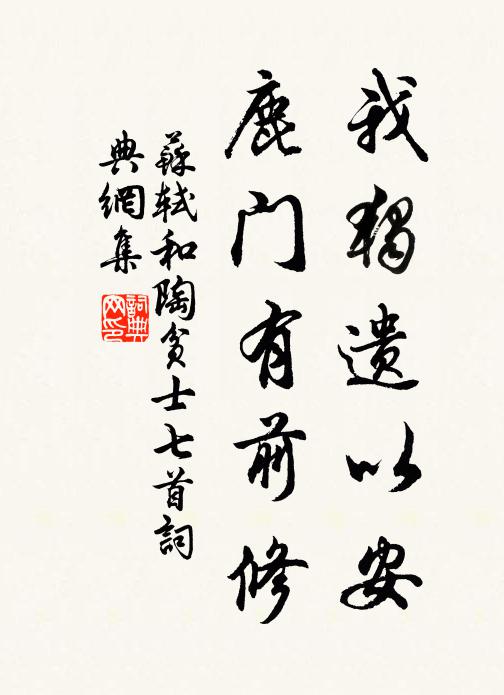 我獨遺以安
鹿門有前修
蘇軾和陶貧士七首詞
典網集
詞典网印